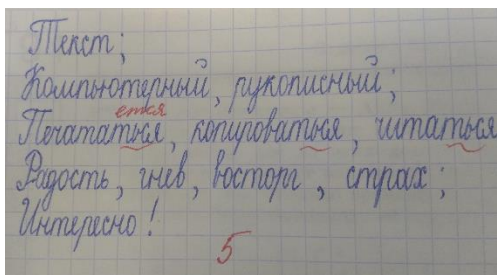 Текст;
Компьютерный, рукописный;
ется
Печататься, копироваться, читаться
Радость, гнев, восторг, страх;
Интересно!
5